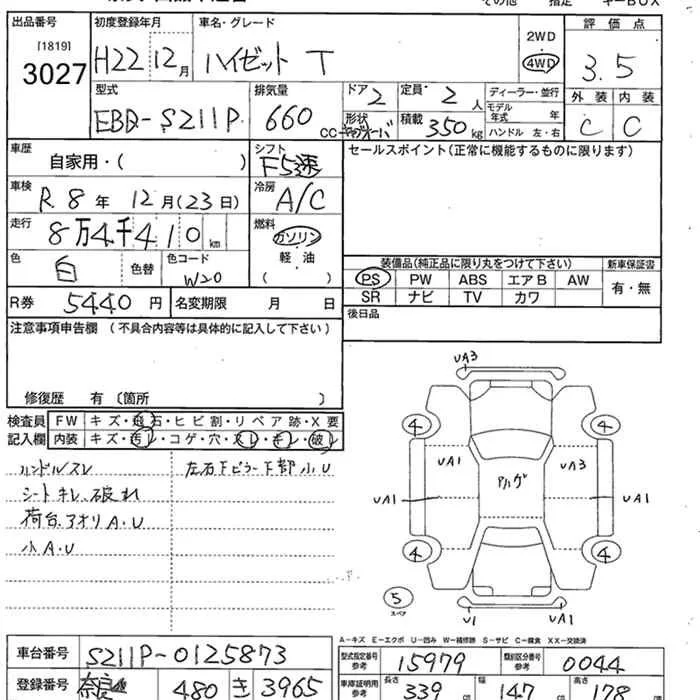 その他 指定 キーBOX
出品番号 初度登録年月 車名・グレード 評価点
[1819] 2WD
3027 H22 12月 ハイゼット T 4WD 3.5
型式 排気量 ドア 定員 ディーラー・並行 外装 内装
EBD-S211P 660cc 2 2人 モデル年式 年 C C
形状 積載 350kg ハンドル 左・右
車歴 自家用・( ) シフト F5速 セールスポイント(正常に機能するものに限ります)
車検 R.8年 12月(23日) 冷房 A/C
走行 8万4千410km 燃料 ガソリン
色 白 色替 色コード W20 軽油 ( )
装備品(純正品に限り丸をつけて下さい) 新車保証書
PS PW ABS エアB AW 有・無
SR ナビ TV カワ
R券 5440円 名変期限 月 日 後日品
注意事項申告欄 (不具合内容等は具体的に記入して下さい)
修復歴 有〔箇所 〕
検査員 FW キズ・飛石・ヒビ割・リペア跡・X要
記入欄 内装 キズ・汚レ・コゲ・穴・スレ・キレ・破レ
ハンドルスレ 左右Fピラー下部小U
シートキレ、破れ
荷台.アオリA.U
小A・U
UA3
4 4
UA1 UA3
アハゲ
UA1 UA1
4 4
5
スペア
U1 UA1
A-キズ E-エクボ U-凹み W-補修跡 S-サビ C-腐食 XX-交換済
車台番号 S211P-0125873 型式指定番号 参考 15979 類別区分番号 参考 0044
登録番号 奈良 480 き 3965 車庫証明用 参考 長さ 339cm 幅 147cm 高さ 178cm